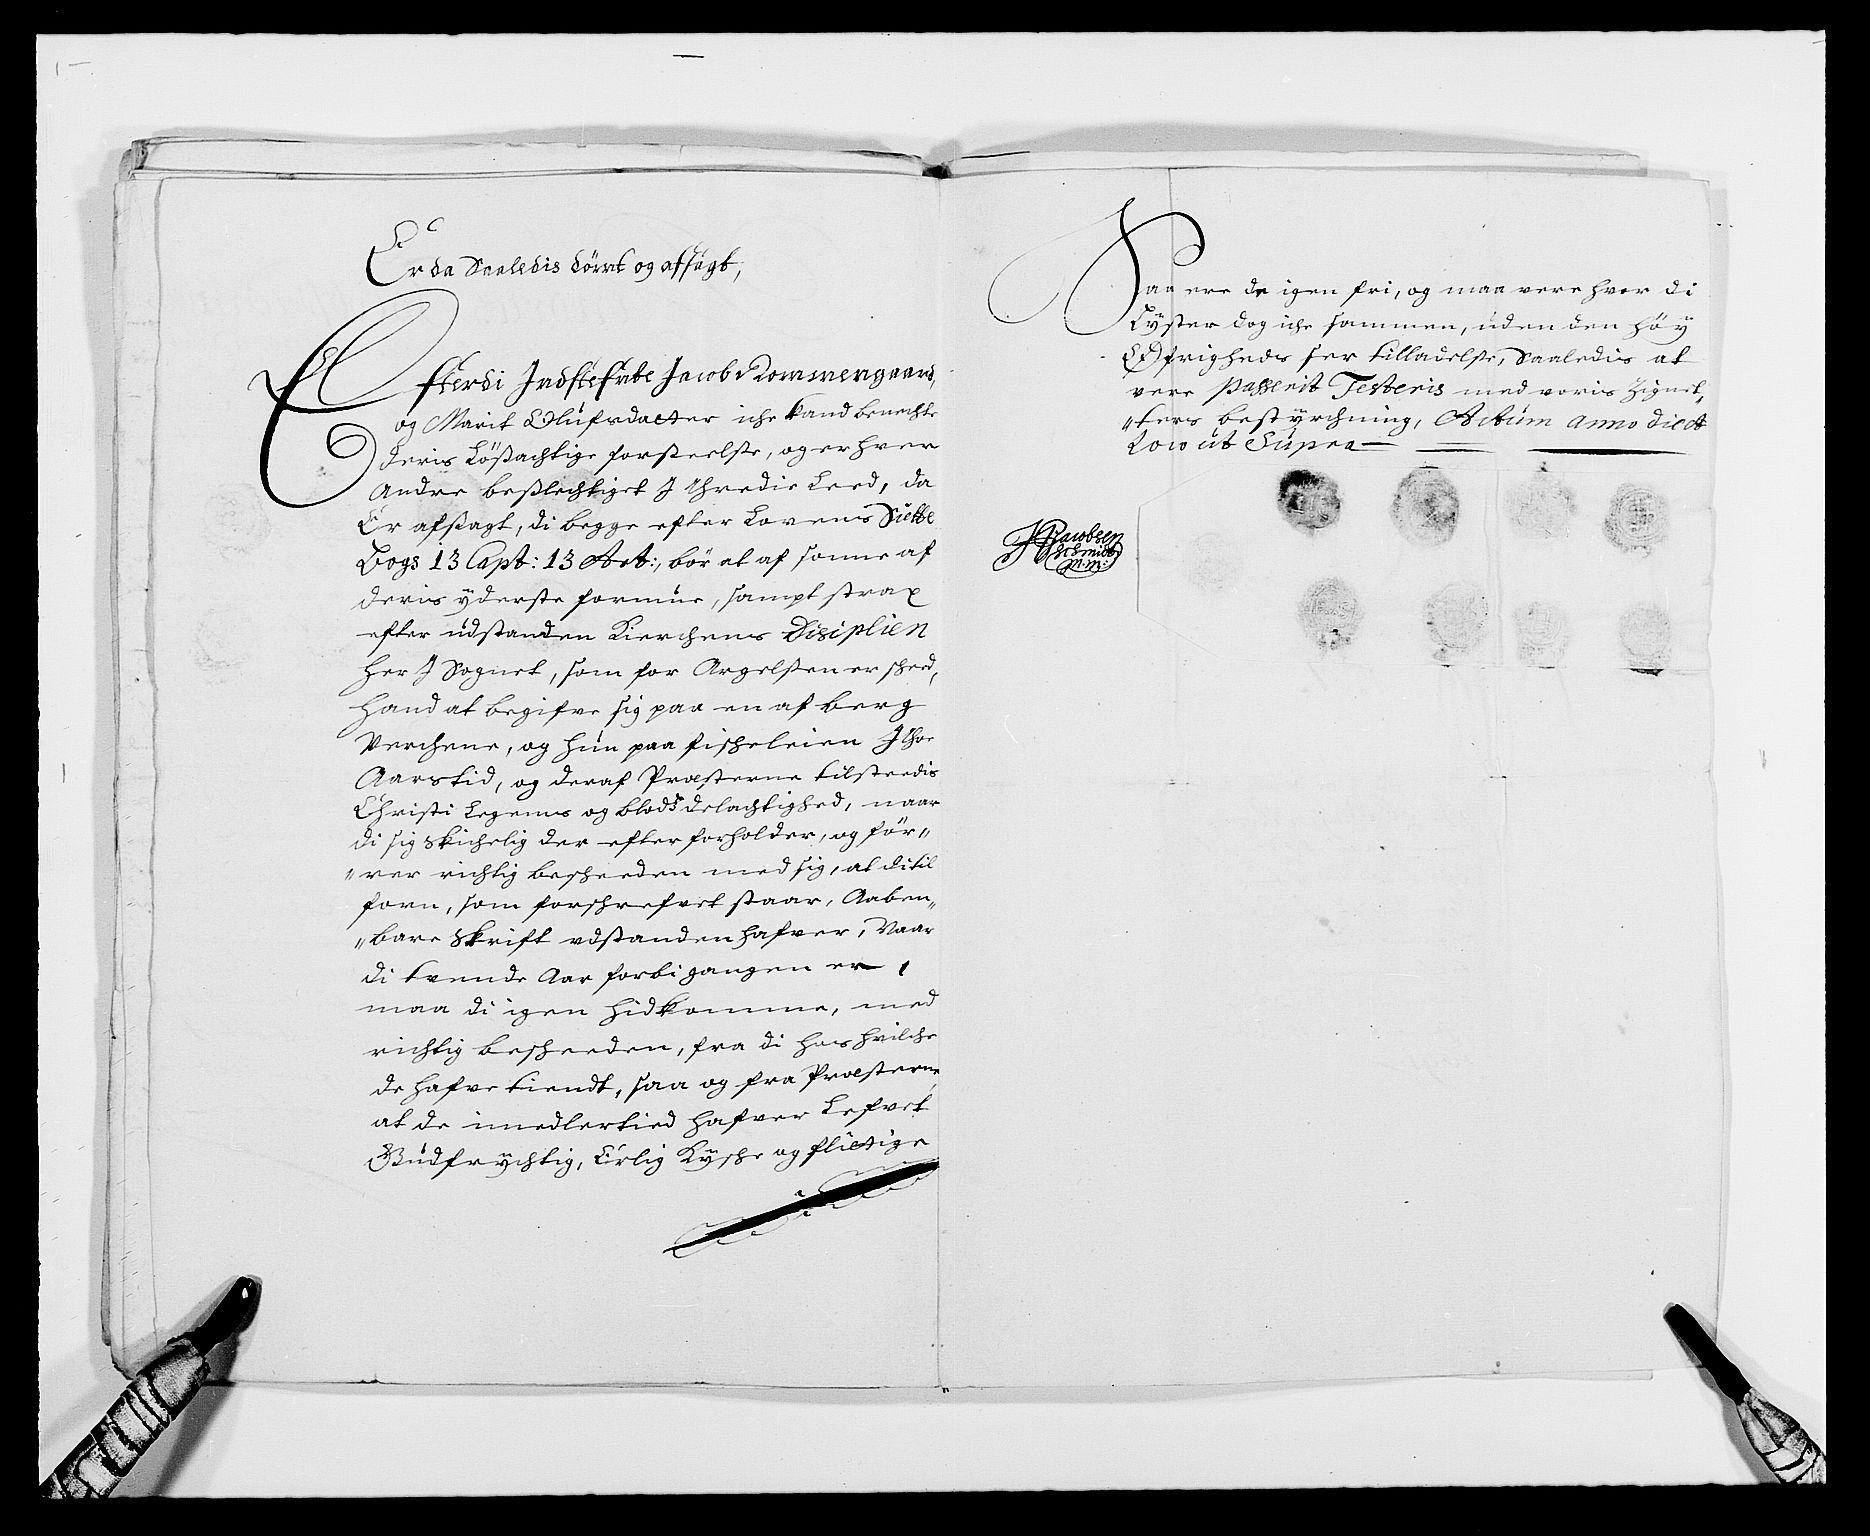 Er da Saaledis dömt og afsagt,
Efterdi Indstefnte Jacob Rommengaard,
og Marit Olufsdatter iche kand benechte
deris Lößachtige forseelse, og er hver
Andre beslechtiget J thredie Leed, da
Er afsagt, di begge efter Lovens Siette
Bogs 13 Capt: 13 Art:, bör at af sonne af
deris yderste formue, sampt strax
efter udstanden Kierchens Disiplien
her J Sognet, som for Argelsen er sked,
hand at begifve sig paa en af berg
Verchene, og hun paa fischeleien J thoe
Aars tid, og deraf Præsterne tilstedis
Christi Legems og blods delachtighed, naar
di sig skichelig der efter forholder, og för„
„rer richtig bescheeden med sig, at di til
forn, som forschrefvet staar, Aaben„
„bare Skrift udstanden hafver, Naar
di tvende Aar forbigangen er,
maa di igen hid komme, med
richtig bescheeden, fra di hos hvilche
de hafve tiendt, saa og fra Præsterne
at de imedlertied hafver Lefvet
Gudfrychtig, Erlig Kysche og flittige
Saa ere de igen fri, og maa vere hvor di
Lyster dog iche sammen, uden den höy
Öfrigheds ser tilladelse, Saaledis at
vere Passerit Testeris med voris Zignet„
„ters bestyrchning, Actum anno die et
Loco ut Supra
Jacobsen
Schmidt
m:m: